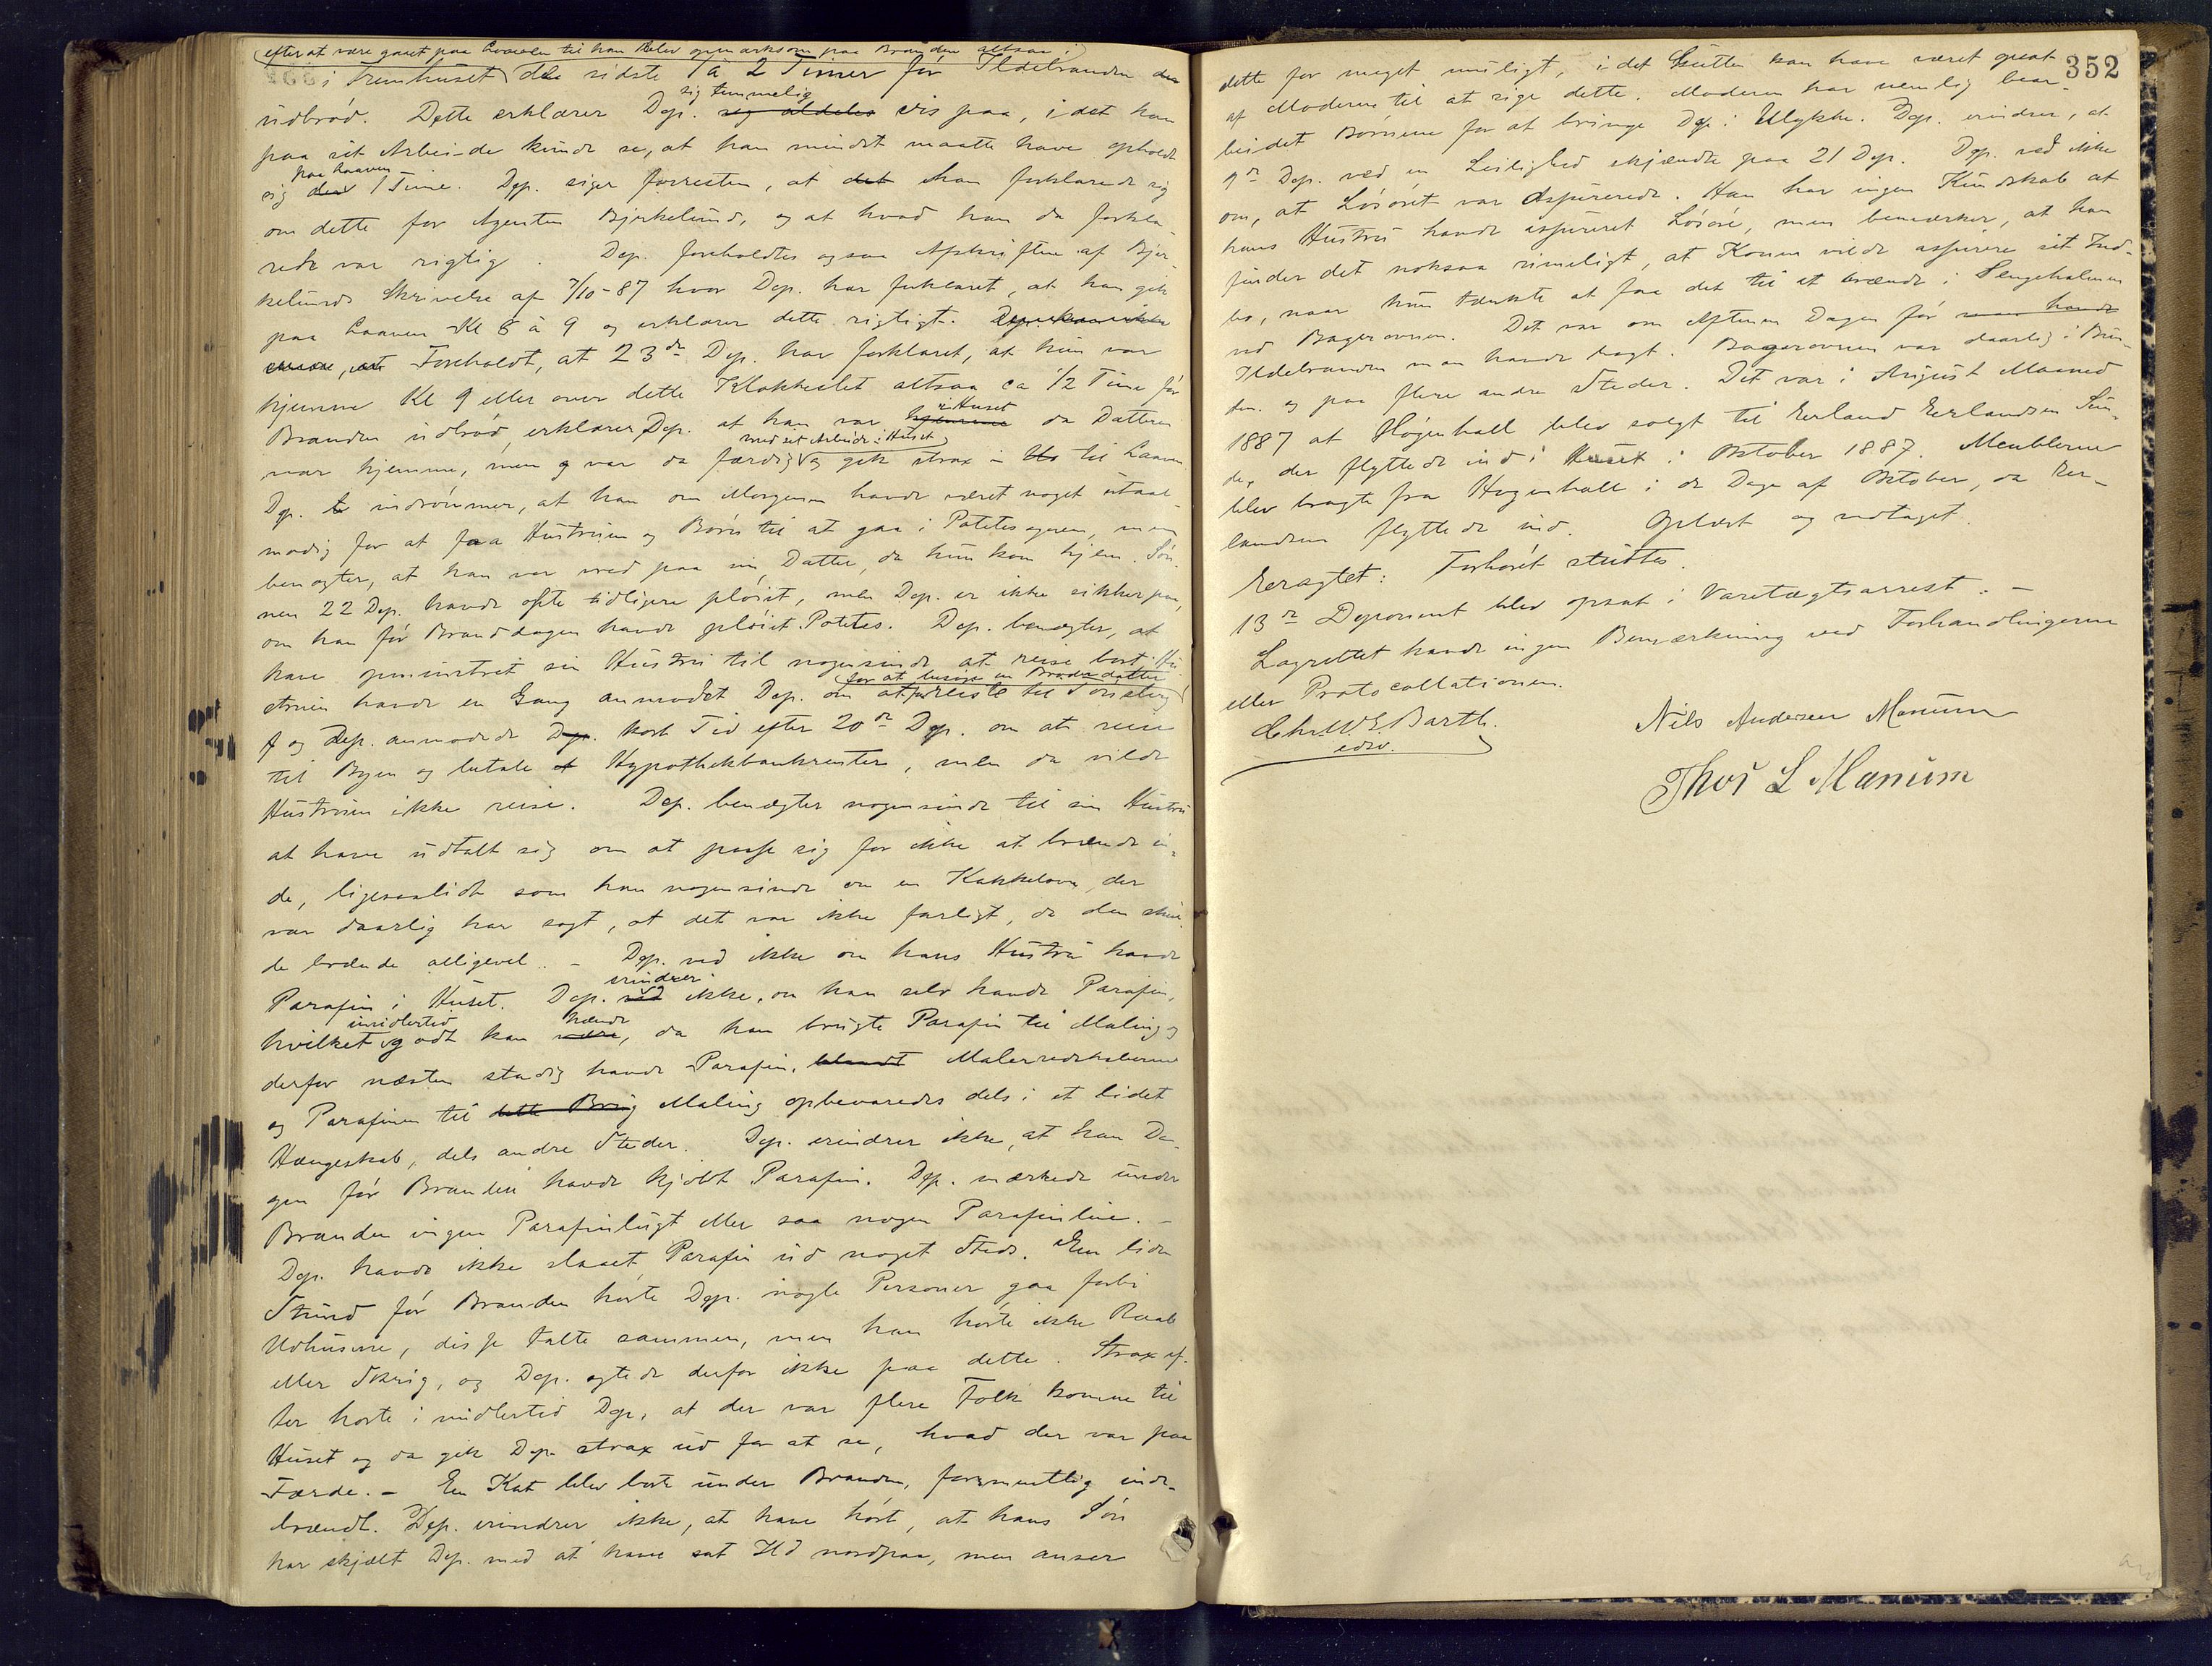 efter at være gaaet paa Laaven til han blev opmærksom paa Branden altsaa i
i Vaanhuset de sidste 1 à 2 Timer før Ildebranden der
sig temmelig
udbrød. Dette erklærer Dep. sig aldeles vis paa, idet han
paa sit Arbeide kunde se, at han mindst maatte have opholdt
paa Laaven
sig der 1 Time. Dep. siger forresten, at det han forklarede sig
om dette for Agenten Bjerkelund, og at hvad han da forkla-
rede var rigtig. Dep. foreholdtes ogsaa Afskriften af Bjer-
kelunds Skrivelse af 7/10-87 hvor Dep. har forklaret, at han gik
paa Laaven Kl 8 à 9 og erklærer dette rigtigt. Dep. kan ikke
Foreholdt, at 23de Dep. har forklaret, at hun var
hjemme Kl 9 eller over dette Klokkeslet altsaa ca 1/2 Time før
i Huset
Branden udbrød, erklærer Dep. at han var hjemme da Datteren
med sit Arbeide i Huset
var hjemme, men g var da færdig og gik strax i Ud til Laaven
Dep. b indrømmer, at han om Morgenen havde været noget utaal-
modig for at faa Hustruen og Børn til at gaa i Potetesageren, men
benægter, at han var vred paa sin Datter, da hun kom hjem. Søn-
nen 22 Dep. havde ofte tidligere pløiet, men Dep. er ikke sikker paa,
om han før Branddagen havde pløiet Potetes. Dep. benægter, at
have opmuntret sin Hustru til nogensinde at reise bort. Hu-
for at besøge en Broderdatter
struen havde en Gang anmodet Dep. om at reise til Tønsberg
f og Dep. anmodede Dep. kort Tid efter 20de Dep. om at reise
til Byen og betale et Hypothekbankrenter, men da vilde
Hustruen ikke reise. Dep. benægter nogensinde til sin Hustru
at have udtalt sig om at passe sig for ikke at brænde in-
de, ligesaalidt som han nogensinde om en Kakkelovn, der
var daarlig har sagt, at det var ikke farligt, da den skul-
de brænde alligevel. – Dep. ved ikke om hans Hustru havde
erindrer
Parafin i Huset. Dep. ved ikke, om han selv havde Parafin,
imidlertid hænde
hvilket godt kan være, da han brugte Parafin til Maling og
derfor næsten stadig havde Parafin, blandt Malerredskaberne
og Parafinen til dette Brug Maling opbevaredes dels i et lidet
Hængeskab, dels andre Steder. Dep. erindrer ikke, at han Da-
gen før Branden havde kjøbt Parafin. Dep. mærkede under
Branden ingen Parafinlugt eller saa nogen Parafinlue. –
Dep. havde ikke slaaet Parafin ud noget Steds. En liden
Stund før Branden hørte Dep. nogle Personer gaa forbi
Udhusene, disse talte sammen, men han hørte ikke Raab
eller Skrig, og Dep. agtede derfor ikke paa dette. Strax ef-
ter hørte imidlertid Dep., at der var flere Folk komne til
Huset og da gik Dep. strax ud for at se, hvad der var paa
Færde. – En Kat blev borte under Branden, formentlig inde-
brændt. Dep. erindrer ikke, at have hørt, at hans Søn
har skjælt Dep. med at have sat Ild nordpaa, men anser
352
dette for meget muligt, i det Gutten kan have været opsat
af Moderen til at sige dette. Moderen har nemlig bear-
beidet Børnene for at bringe Dep. i Ulykke. Dep. erindrer, at
9de Dep. ved en Leilighed skjændte paa 21 Dep. Dep. ved ikke
om, at Løsøret var assurerede. Han har ingen Kundskab at
hans Hustru havde assureret Løsøre, men bemærker, at han
finder det noksaa rimeligt, at Konen vilde assurere sit Ind-
bo, naar hun tænkte at faa det til at brænde i Sengehalmen
ved Bagerovnen. Det var om Aftenen Dagen før man havde
Ildebranden man havde bagt. Bagerovnen var daarlig i Bun-
den og paa flere andre Steder. Det var i August Maaned
1887 at Høgenhall blev solgt til Erland Erlandsen Sun-
de, der flyttede ind i Huset i Oktober 1887. Meublerne
blev bragte fra Høgenhall i de Dage af Oktober, da Er-
landsen flyttede ind. Oplæst og vedtaget.
Eragtet: Forhøret sluttes.
13de Deponent blev opsat i Varetægtsarrest. –
Lagrettet havde ingen Bemærkning ved Forhandlingerne
eller Protocollationen.
Chr. W. E. Barth.
edsv.
Nils Andersen Manum
Thor L Manum